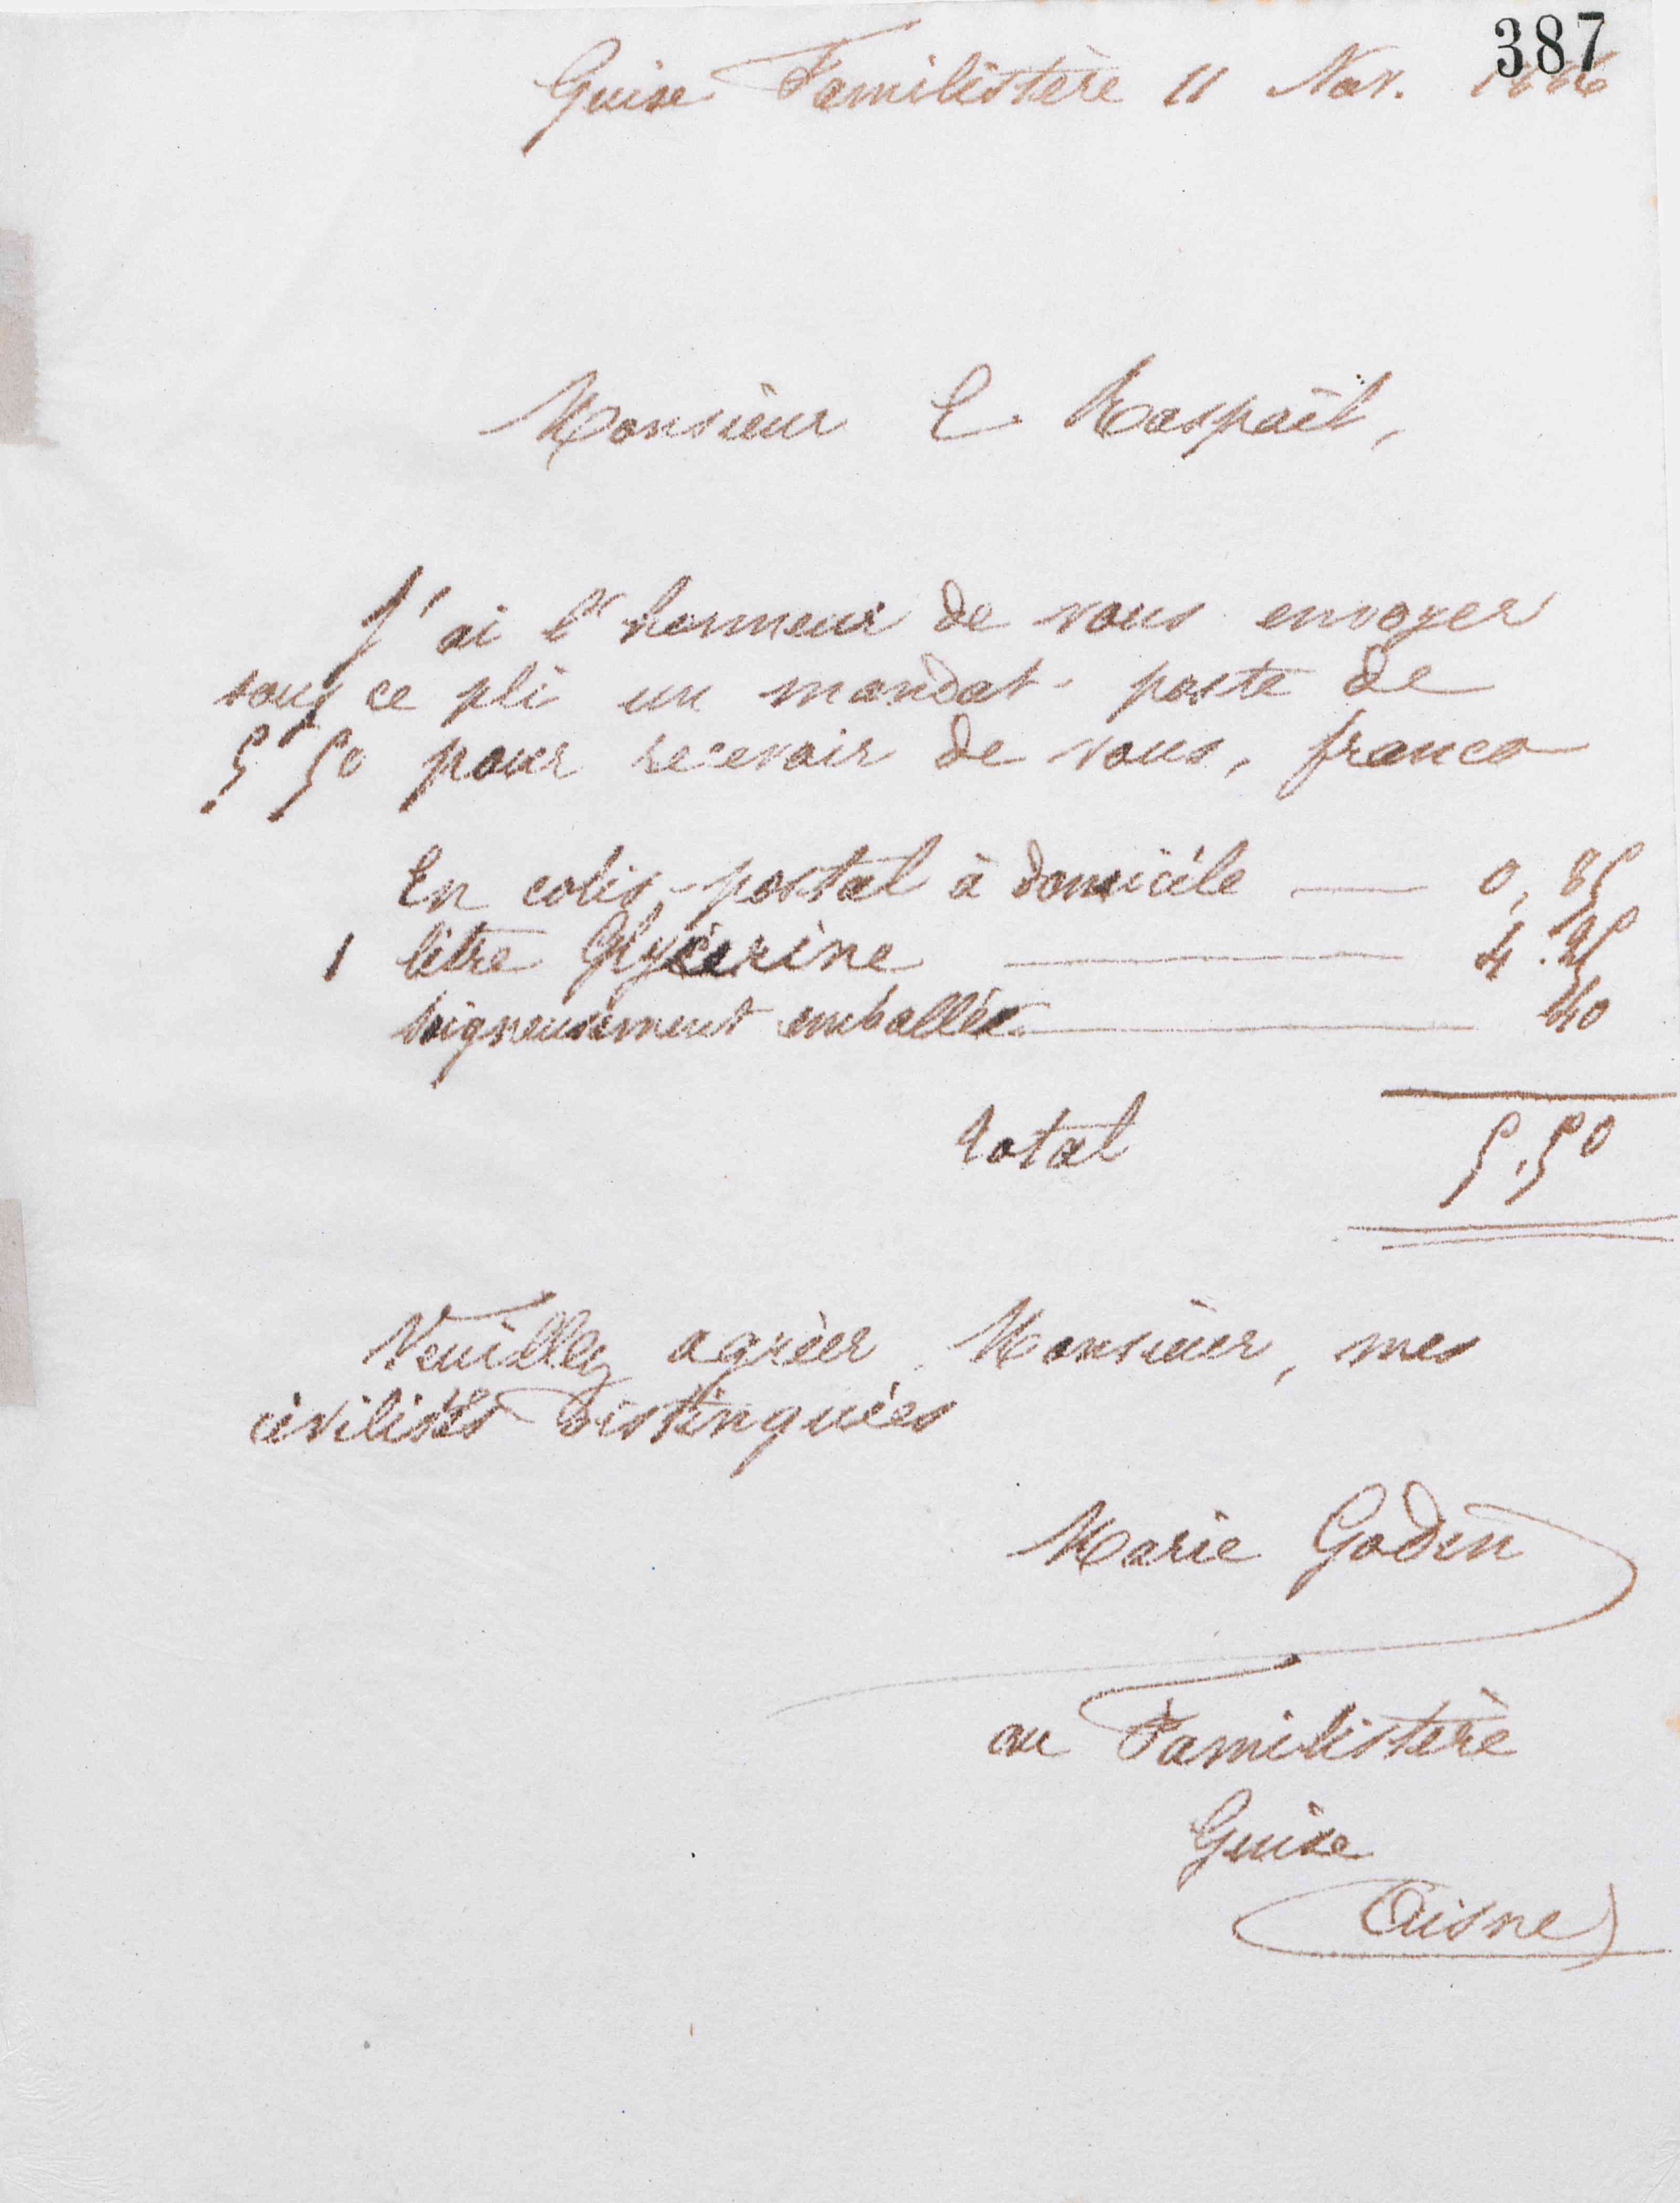 387
Guise Familistère 11 Nov. 1886
Monsieur E. Raspail,
J'ai l'honneur de vous envoyer
sous ce pli un mandat-poste de
5f 50 pour recevoir de vous, franco
En colis-postal à domicile — 0,85
1 litre Glycérine — 4.25
soigneusement emballée — 40
total 5.50
Veuillez agréer Monsieur, mes
civilités distinguées
Marie Godin
au Familistère
Guise
(Aisne)